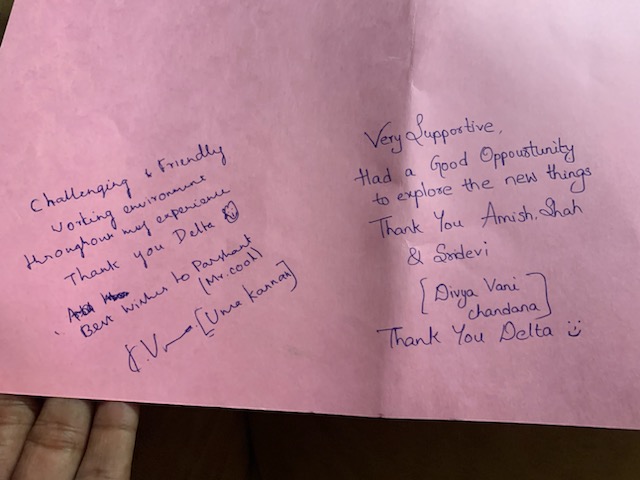 Challenging & Friendly
Working environment
throughout my experience
Thank you Delta
Best wishes to Parshant
(Mr. cool)
[Uma Kannan]
Very Supportive,
Had a Good Oppourtunity
to explore the new things
Thank You Amish. Shah
& Sridevi
[Divya Vani
chandana]
Thank You Delta :)